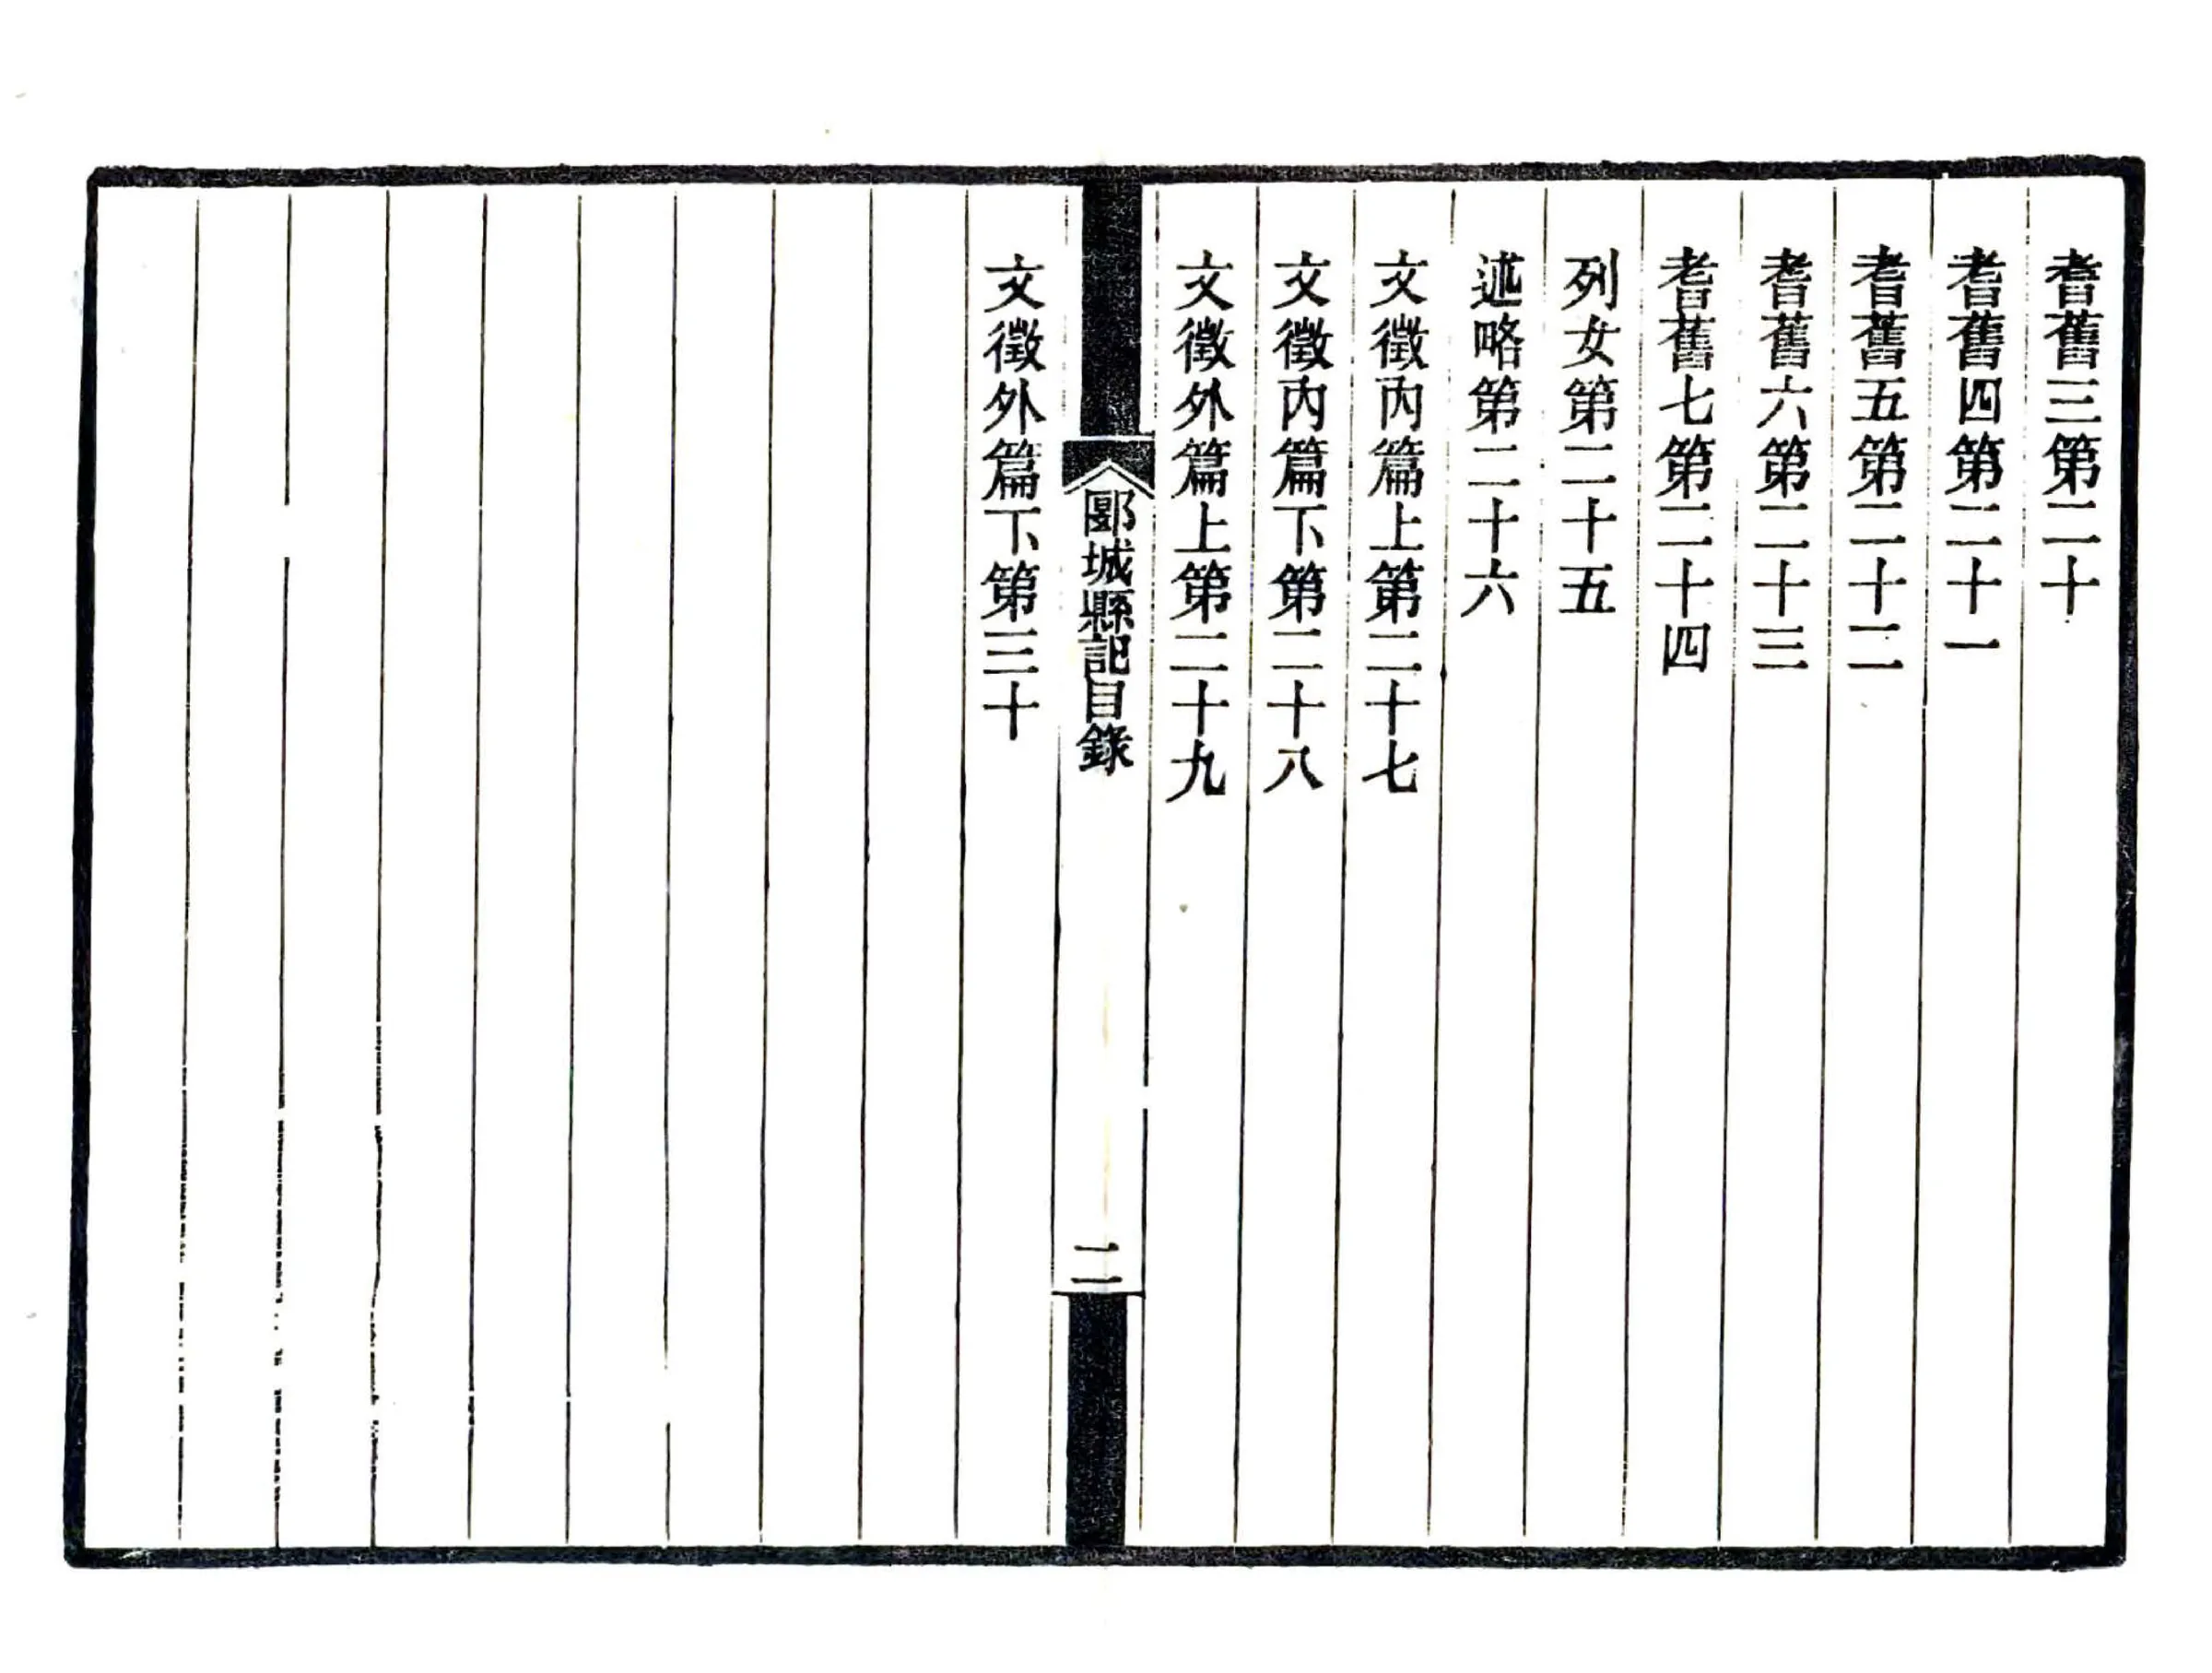 耆舊三第二十
耆舊四第二十一
耆舊五第二十二
耆舊六第二十三
耆舊七第二十四
列女第二十五
述略第二十六
文徵內篇上第二十七
文徵內篇下第二十八
文徵外篇上第二十九
郾城縣記目錄
二
文徵外篇下第三十